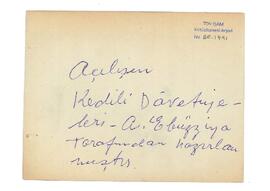 TDV İSAM
Kütüphanesi Arşivi
Açılışın
Kedili Dâvetiye-
leri - A. Ebüzziya
tarafından hazırlan
mıştır.